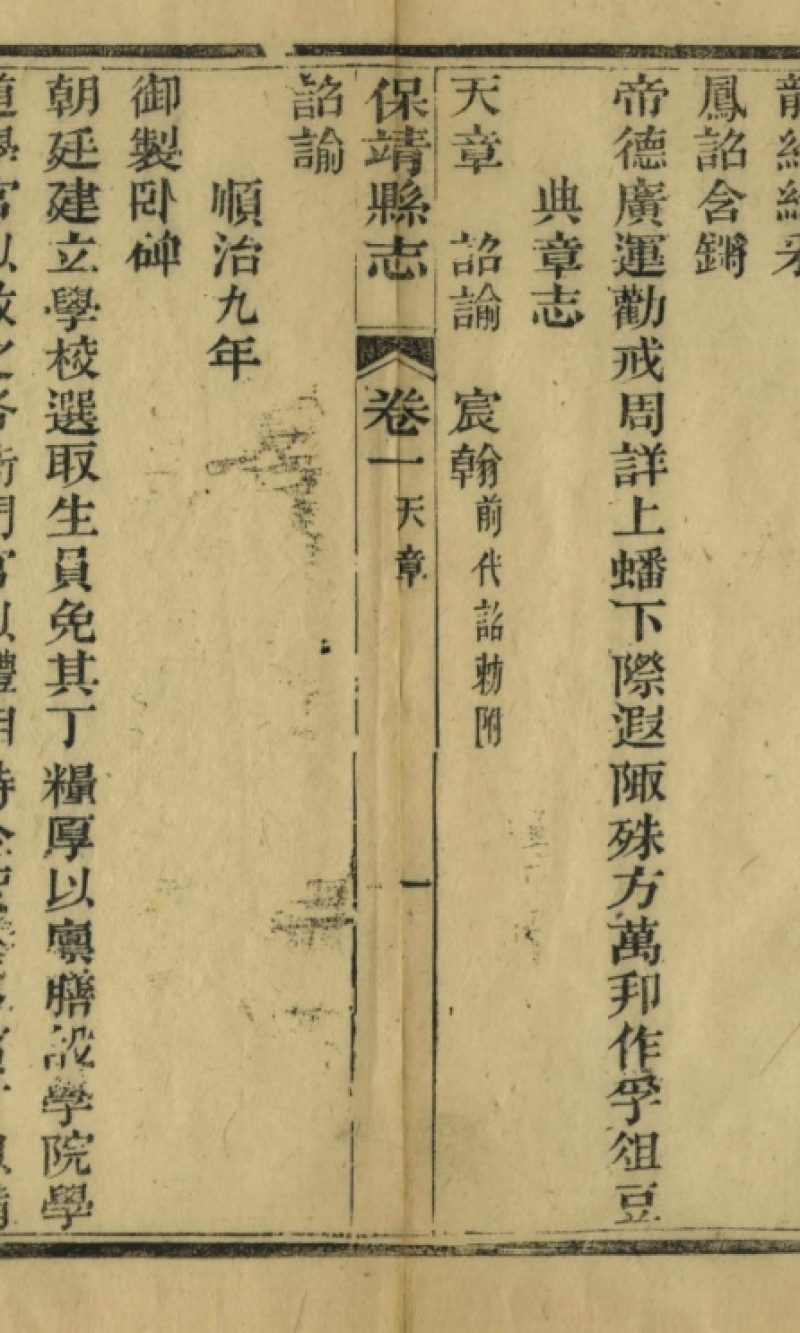 鳳詔含鏘
帝德廣運勸戒周詳上蟠下際遐陬殊方萬邦作孚俎豆
典章志
天章　詔諭　宸翰前代詔勅附
保靖縣志　卷一天章　一
詔諭
順治九年
御製卧碑
朝廷建立學校選取生員免其丁糧厚以廩膳設學院學
道學官以教之各衙門官以禮相待全